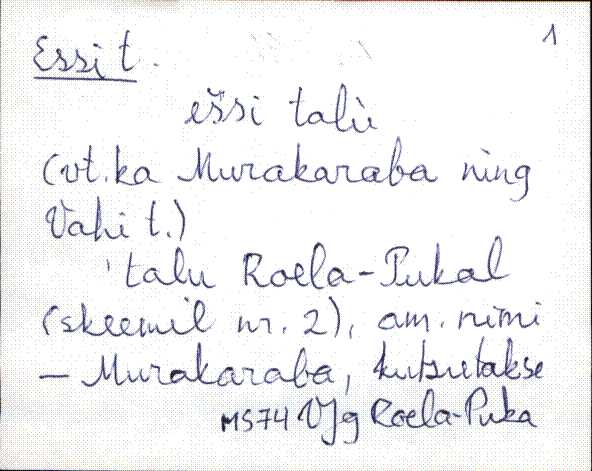 1
Essi t.
ešsi talù
(vt. ka Murakaraba ning
Vahi t.)
talu Roela-Pukal
(skeemil nr. 2), am. nimi
– Murakaraba, kutsutakse
MS74 VJg Roela-Puka